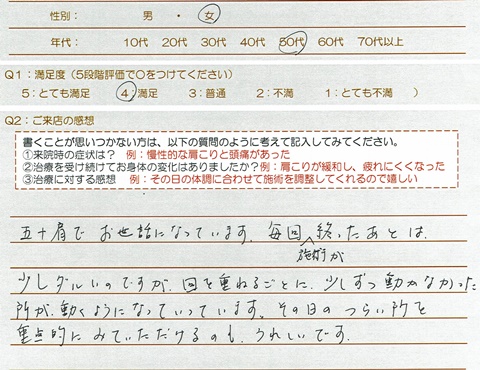 性別： 男 ・ 女
年代： 10代 20代 30代 40代 50代 60代 70代以上
Q1：満足度（5段階評価で〇をつけてください）
5：とても満足 4：満足 3：普通 2：不満 1：とても不満 ）
Q2：ご来店の感想
書くことが思いつかない方は、以下の質問のように考えて記入してみてください。
①来院時の症状は？ 例：慢性的な肩こりと頭痛があった
②治療を受け続けてお身体の変化はありましたか？例：肩こりが緩和し、疲れにくくなった
③治療に対する感想 例：その日の体調に合わせて施術を調整してくれるので嬉しい
五十肩で お世話になっています。毎回 施術が 終ったあとは、
少しダルいのですが、回を重ねるごとに、少しずつ動かなかった
所が、動くようになっていっています。その日の つらい所を
重点的に みていただけるのも、うれしいです。